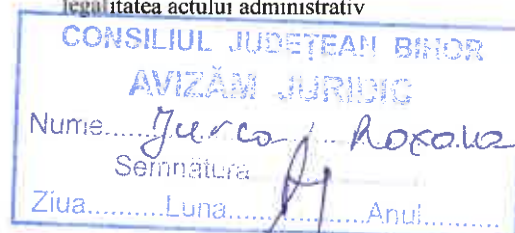 legalitatea actului administrativ
CONSILIUL JUDEȚEAN BIHOR
AVIZĂM JURIDIC
Nume......Jurca Roxana
Semnătura
Ziua..........Luna..................Anul..........